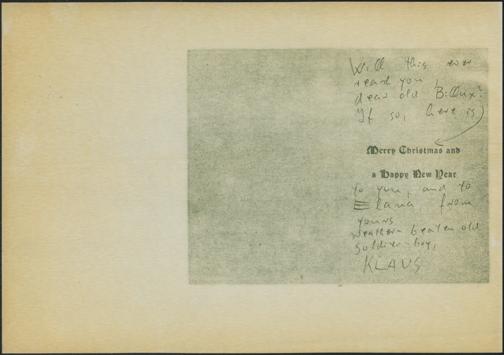 Will this ever
reach you,
dear old Billux?
If so, here is
Merry Christmas and
a Happy New Year
to you, and to
from
yours
weather beaten old
soldier-boy,
KLAUS